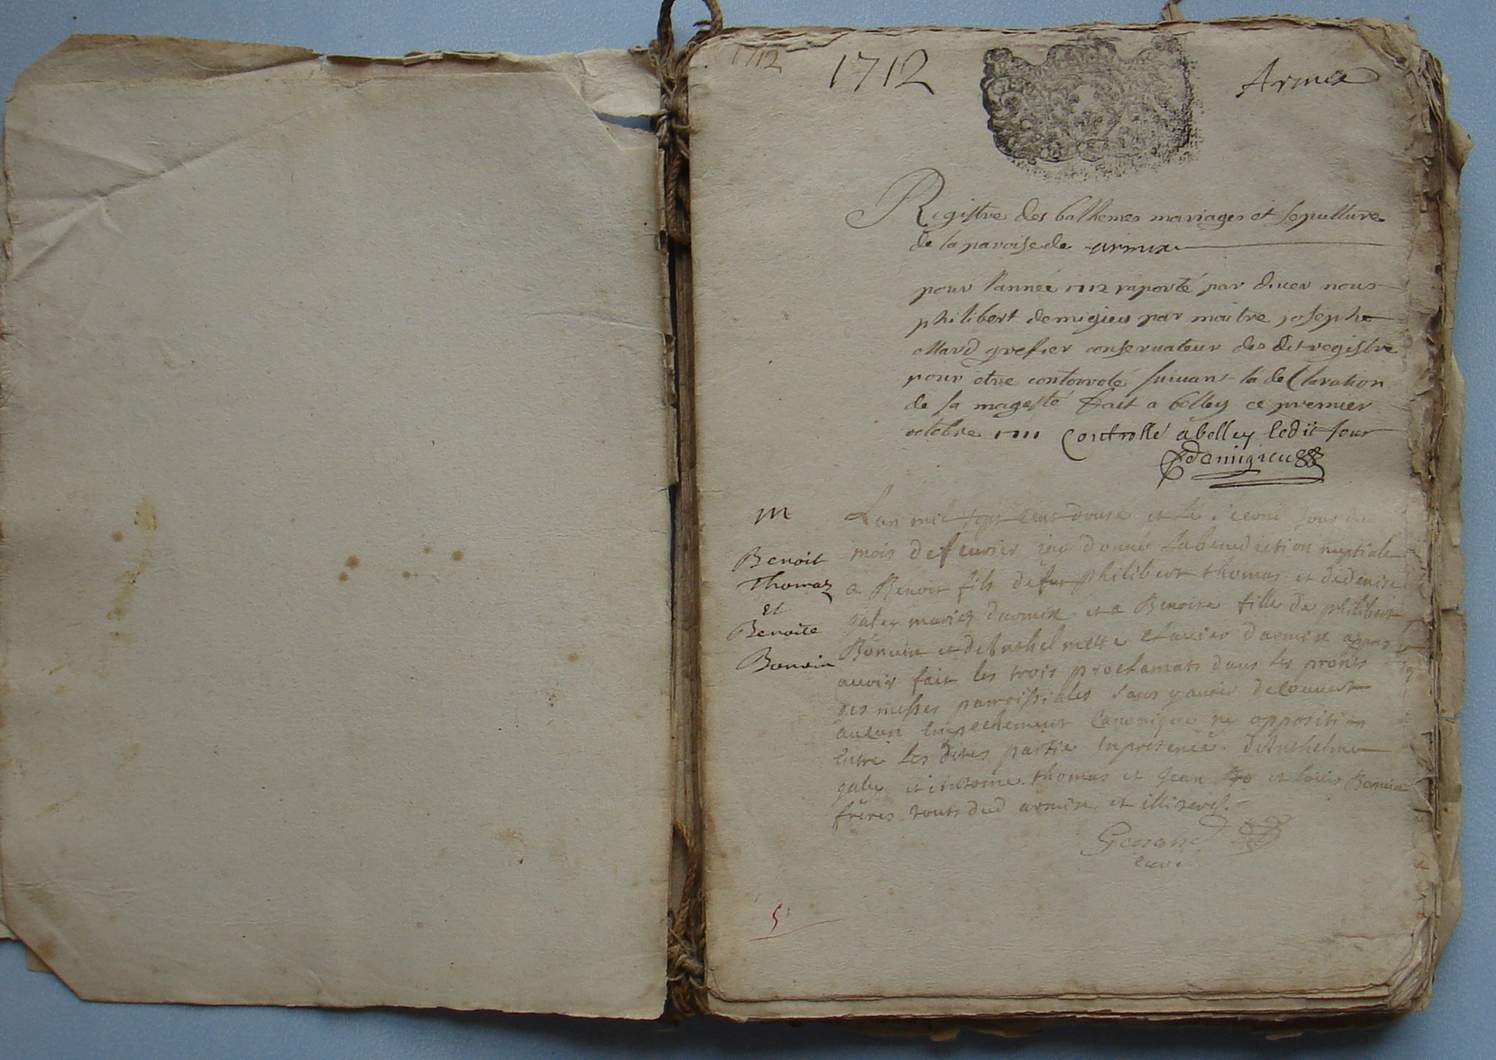 1712
1712
Armix
Registre des battemes mariages et sepulture
de la paroise de armix
pour l'annee 1712 raporté par dever nous
philibert demigieu par maitre joseph
grefier conservateur des dit registre
pour etre controlé suivant la declaration
de sa magesté fait a belley ce premier
octobre 1711 controllé a belley ledit jour
demigieu
m
Benoit
Thomaz
et
Benoite
Bonvin
Lan mil sept cent douse et le jour du
mois de fevrier jay donné la benediction nuptiale
a Benoit fils de feu philibert thomas et de denise
galey mariez darmix et a Benoite fille de philibert
Bonvin et de Anthelmette darmix apres
avoir fait les trois proclamats dans les prones
des messes paroissiales sans y avoir decouvert
aucun empechement canonique ny opposition
entre les dites partie en presence d'Anthelme
galey et Antoine thomas et Jean et louis Bonvin
freres touts dud armix et illiterés.
curé
5